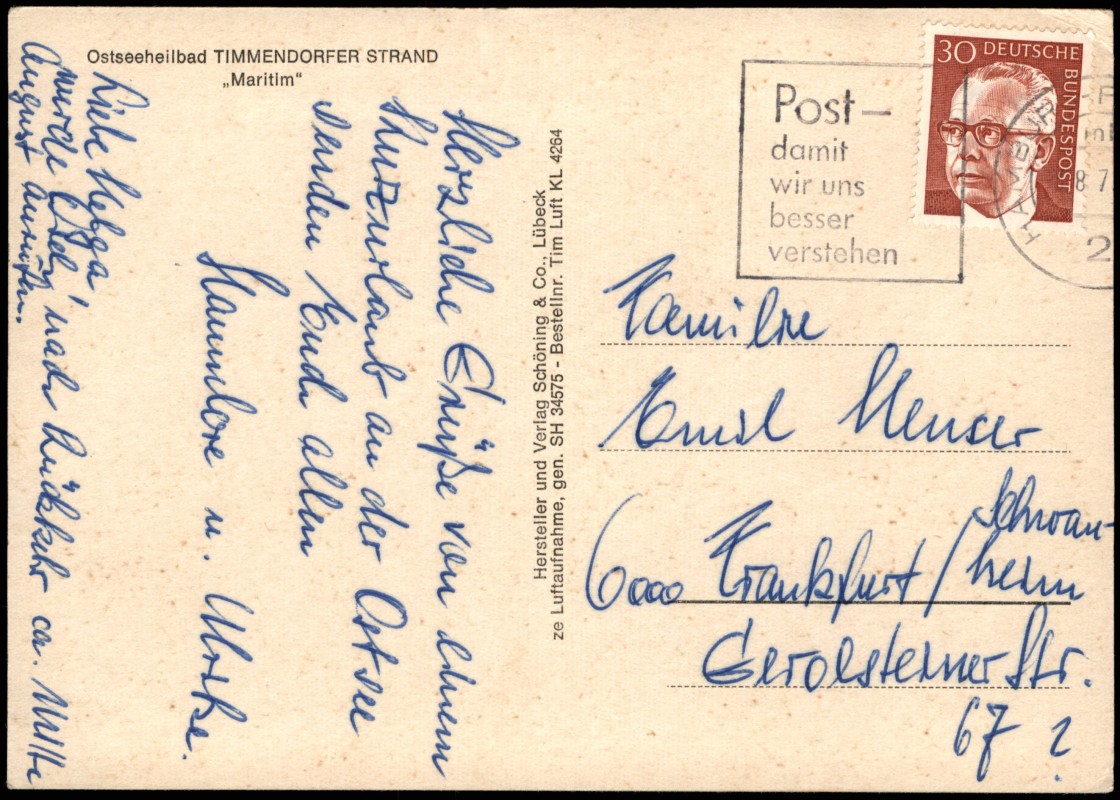 Ostseeheilbad TIMMENDORFER STRAND
„Maritim“
Herzliche Grüße von einem
Kurzurlaub an der Ostsee
senden Euch allen
Hannelore u.
Liebe Helga,
wurde nach Rückkehr ca. Mitte
August anrufen.
Hersteller und Verlag Schöning & Co., Lübeck
ze Luftaufnahme, gen. SH 34575 - Bestellnr. Tim Luft KL 4264
Post –
damit
wir uns
besser
verstehen
30 DEUTSCHE
BUNDESPOST
HAMBURG
8 7
2
Familie
Emil
6000 Frankfurt/Schwan-
heim
Gerolsteiner Str.
67 ?